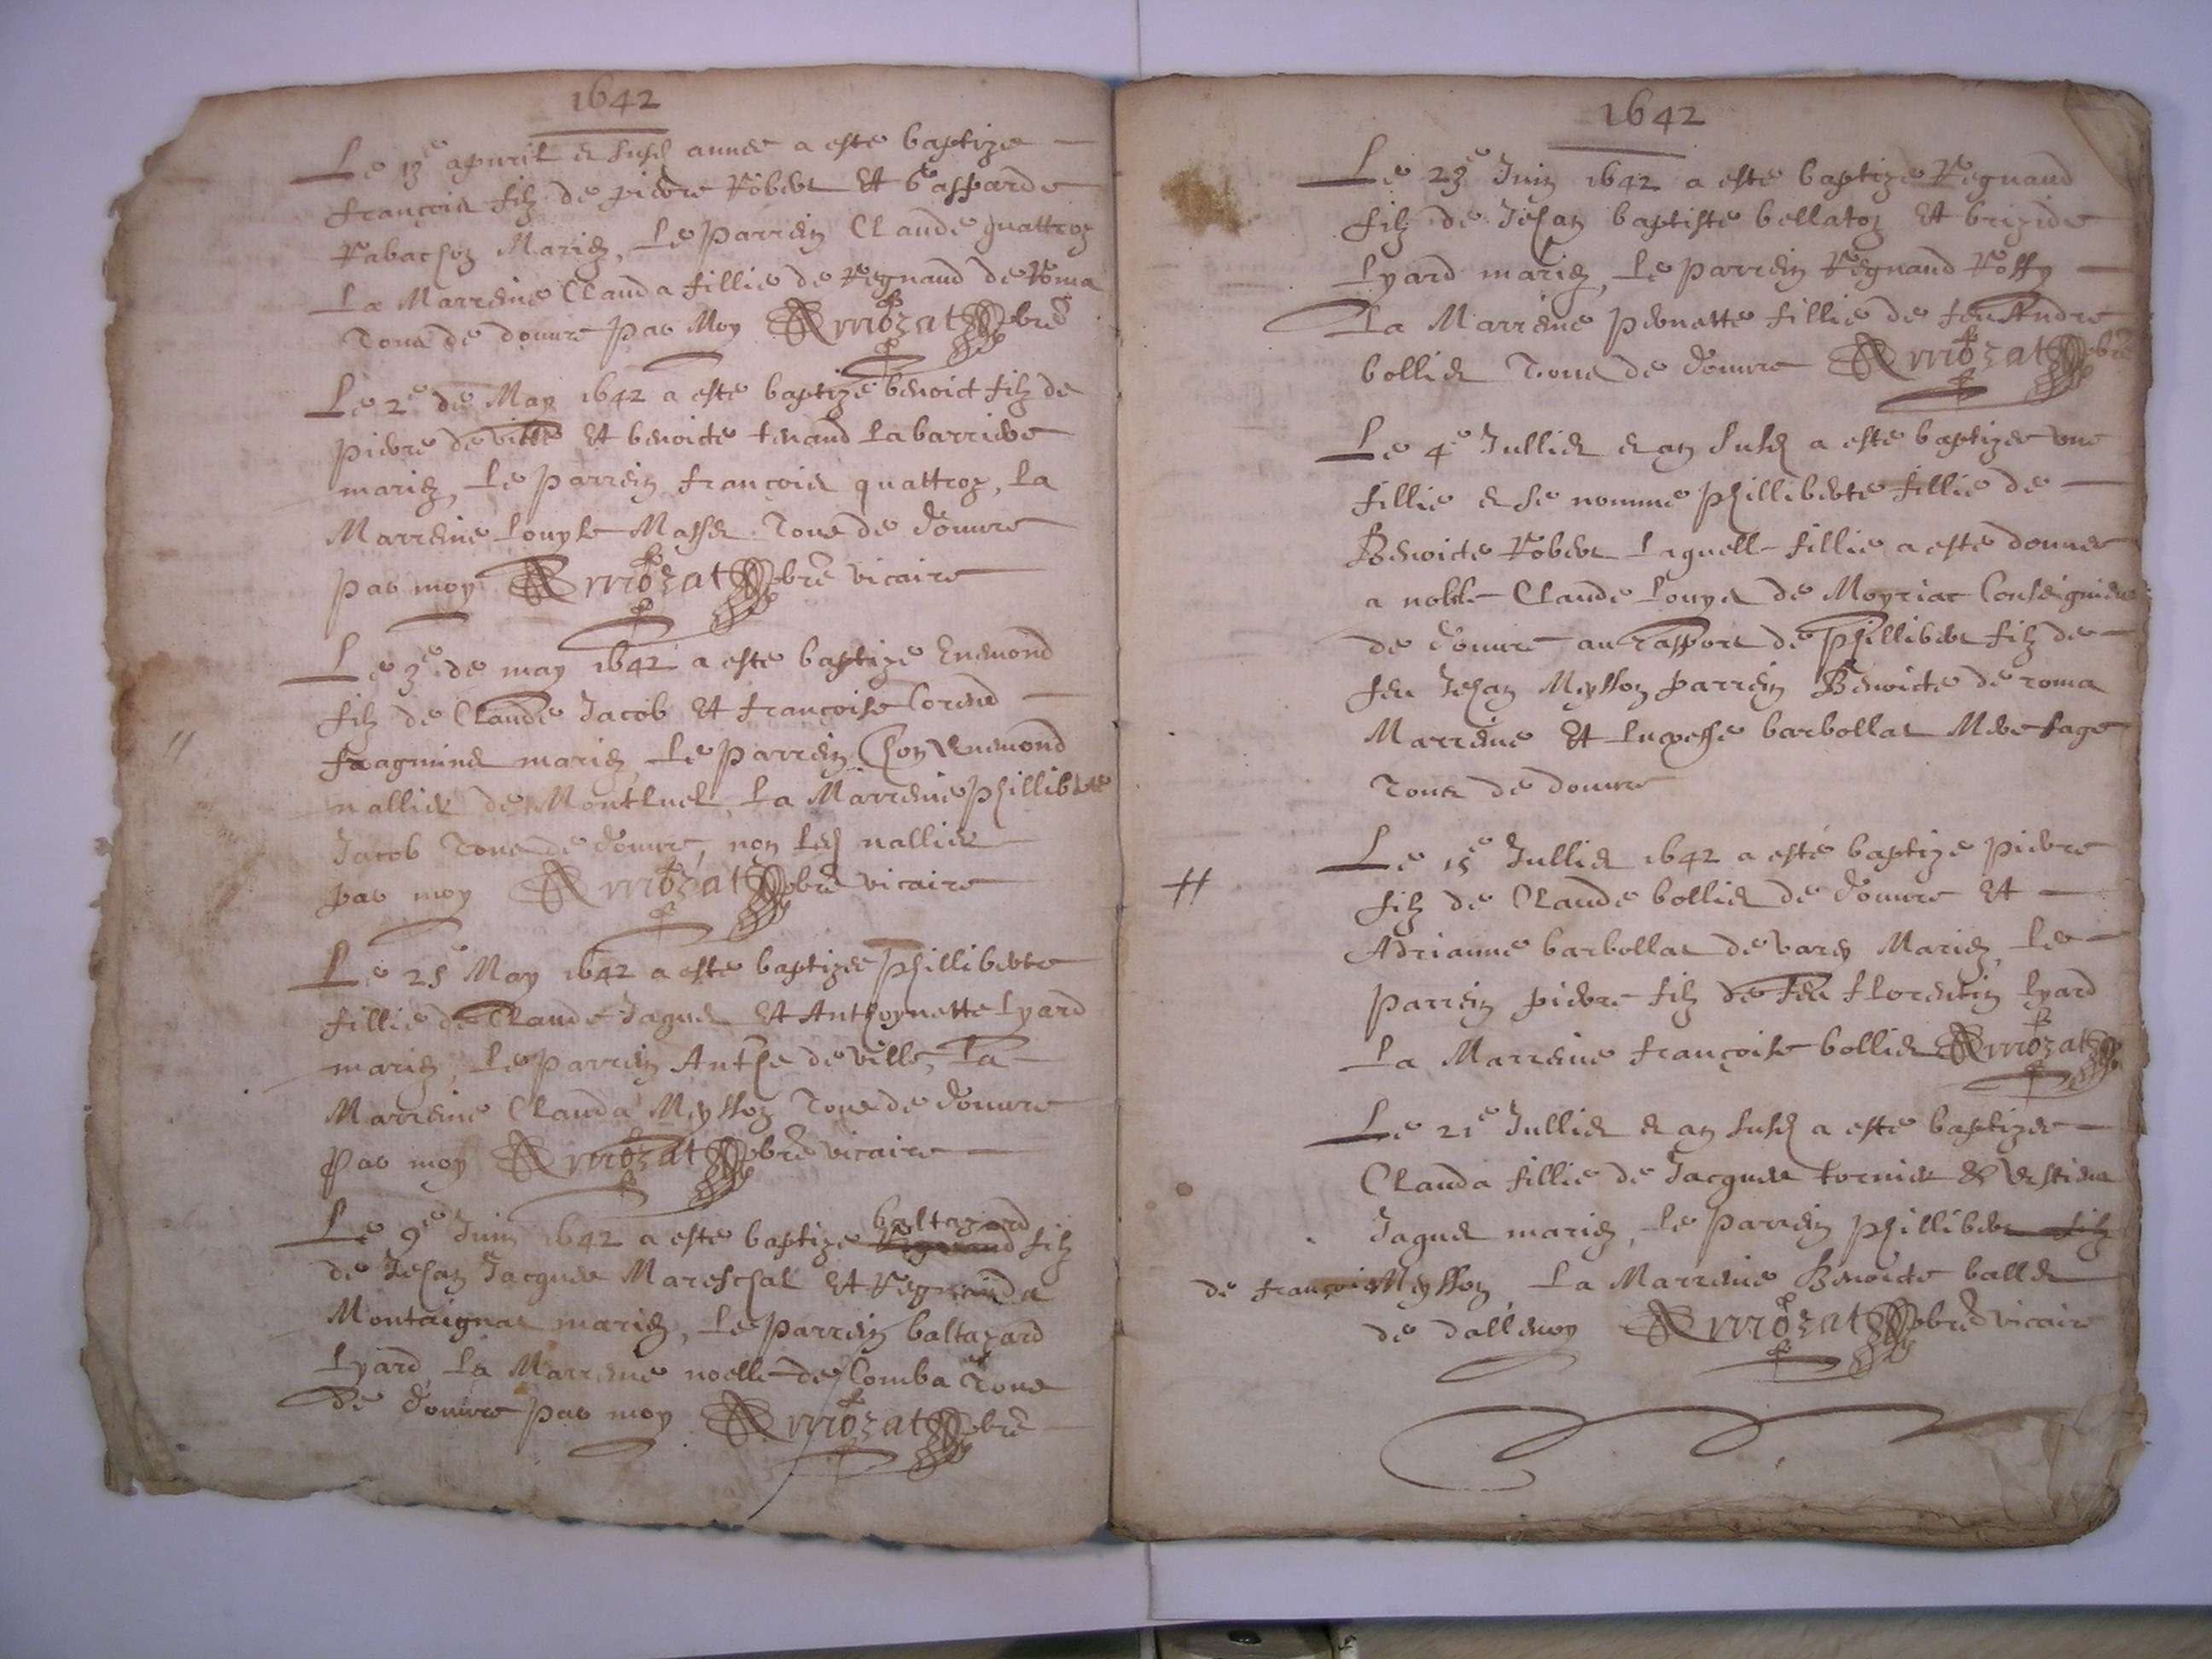 1642
Le 13e apvril & susd annee a este baptize
françois filz de pierre Robert Et Gasparde
Rabachon Mariez, Le Parrein Claude quattroz
La Marreine Clauda fillie de Regnaud de Roma
Tous de douvre par Moy Ormozat pbre
Le 2e de May 1642 a este baptize benoict filz de
pierre de ville Et benoicte tenand La barriere
mariez, Le parrein françois quattroz, La
Marreine Louyse Masset Tous de douvre
par moy pbre vicaire
Le 3e de may 1642 a este baptize Enemond
filz de Claude Jacob Et françoise Corand
mariez, Le Parrein hon Enemond
nallier de Montluel, La Marreine Phillib
Jacob Tous de douvre, non Led nallier
par moy pbre vicaire
Le 25e May 1642 a este baptizee Phillibertte
fillie de Claude Jaguet Et Anthoynette Lyard
mariez, Le Parrein Anthe de ville, La
Marreine Clauda Meysson Tous de douvre
Par moy pbre vicaire
baltazard
Le 9e Juin 1642 a este baptize Regnaud filz
de Jehan Jacques Mareschal Et Regnauda
Montaignat mariez, Le parrein baltazard
Lyard, La Marreine noelle de Comba Tous
de douvre par moy pbre
1642
Le 23e Juin 1642 a este baptize Regnaud
filz de Jehan baptiste bellaton Et brigide
Lyard mariez, Le parrein Regnaud Rossy
La Marreine pernette fillie de feu Andre
bollier Tous de douvre pbre
Le 4e Jullier & an susd a este baptizee une
fillie & se nomme Phillibertte fillie de
Benoicte Robert Laquelle fillie a este donnee
a noble Claude Louys de Moyriac Conseigneur
de douvre au rapport de Phillibert filz de
feu Jehan Meysson parrein Benoicte de roma
Marreine Et barbollat Mere sage
Tous de douvre
Le 15e Jullier 1642 a esté baptize pierre
filz de Claude bollier de douvre Et
Adrianne barbollat de varey Mariez, Le
parrein pierre filz de feu florentin Lyard
La Marreine françoise bollier
Le 21e Jullier & an susd a este baptizee
Clauda fillie de Jacques tornier &
Jaguet mariez, Le parrein Phillibert filz
de françois Meysson, La Marreine Benoicte ballet
de douvre pbre vicaire